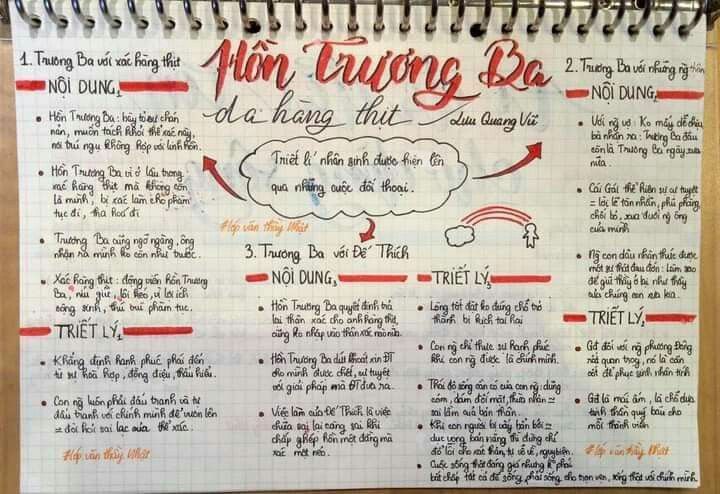 Hồn Trương Ba
da hàng thịt
Lưu Quang Vũ
Triết lí nhân sinh được hiện lên
qua những cuộc đối thoại.
#lớp văn thầy Nhật
1. Trương Ba với xác hàng thịt
NỘI DUNG1
• Hồn Trương Ba: bày tỏ sự chán
nản, muốn tách khỏi thể xác này,
nơi trú ngụ không hợp với linh hồn.
• Hồn Trương Ba vì ở lâu trong
xác hàng thịt mà không còn
là mình, bị xác làm cho phàm
tục đi, tha hoá đi
• Trương Ba cũng ngỡ ngàng, ông
nhận ra mình ko còn như trước.
• Xác hàng thịt: động viên hồn Trương
Ba, níu giữ, lôi kéo, vì lợi ích
sống sinh, thú vui phàm tục.
TRIẾT LÝ1
• Khẳng định hạnh phúc phải đến
từ sự hoà hợp, đồng điệu, thấu hiểu.
• Con ng luôn phải đấu tranh và tự
đấu tranh với chính mình để vươn lên
= đòi hỏi sai lạc của thể xác.
#lớp văn thầy Nhật
2. Trương Ba với những ng thân
NỘI DUNG2
• Với ng vợ: Ko mấy dễ chịu
bà nhận ra: Trương Ba đâu
còn là Trương Ba ngày xưa
nữa.
• Cái Gái thể hiện sự cự tuyệt
= lời lẽ tàn nhẫn, phũ phàng,
chối bỏ, xua đuổi ng ông
của mình
• Ng con dâu nhận thức được
một sự thật đau đớn: Làm sao
để giữ thầy ở lại như thầy
của chúng con xưa kia.
TRIẾT LÝ2
• Gđ đối với ng phương Đông
rất quan trọng, nó là căn
cốt để phục sinh nhân tính
• Gđ là mái ấm, là chỗ dựa
tinh thần quý báu cho
mỗi thành viên
#lớp văn thầy Nhật
3. Trương Ba với Đế Thích
NỘI DUNG3
• Hồn Trương Ba quyết định trả
lại thân xác cho anh hàng thịt,
cũng ko nhập vào thân xác nào nữa.
• Hồn Trương Ba dứt khoát xin ĐT
cho mình được chết, cự tuyệt
với giải pháp mà ĐT đưa ra.
• Việc làm của Đế Thích là việc
chữa sai lại càng sai khi
chấp ghép hồn một đằng mà
xác một nẻo.
TRIẾT LÝ3
• Lòng tốt đặt ko đúng chỗ trở
thành bi kịch tai hại
• Con ng chỉ thực sự hạnh phúc
khi con ng được là chính mình.
• Thái độ sống cần có của con ng: dũng
cảm, dám đối mặt, thừa nhận =
sai lầm quả bản thân.
• Khi con người bị vây bẩn bởi =
dục vọng, bản năng thì đừng chỉ
đổ lỗi cho xác thân, tự vỗ về, nguỵ biện.
• Cuộc sống thật đáng giá nhưng k phải
bất chấp tất cả để sống, phải sống cho trọn vẹn, sống thật với chính mình.